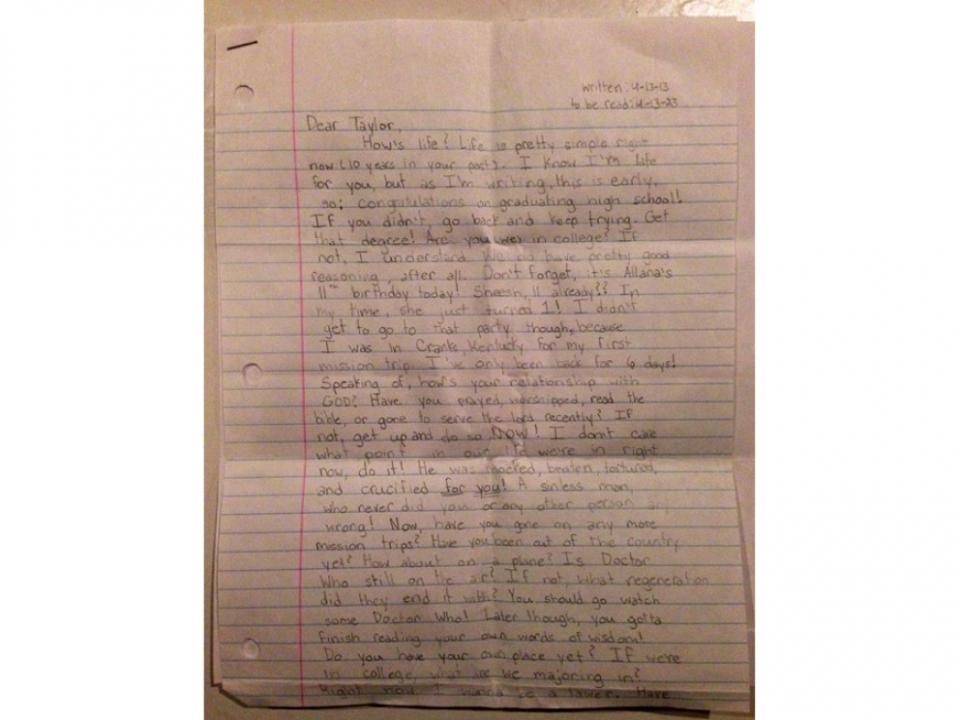 written: 4-13-13
to be read: 4-13-23
Dear Taylor,
How's life? Life is pretty simple right
now (10 years in your past). I know I'm late
for you, but as I'm writing, this is early,
so; congratulations on graduating high school!
If you didn't, go back and keep trying. Get
that degree! Are you in college? If
not, I understand. We do have pretty good
reasoning, after all. Don't forget, it's Allana's
11th birthday today! Sheesh, 11 already?! In
my time, she just turned 1! I didn't
get to go to that party though, because
I was in Cranks, Kentucky for my first
mission trip. I've only been back for 6 days!
Speaking of, how's your relationship with
GOD? Have you prayed, worshipped, read the
bible, or gone to serve the lord recently? If
not, get up and do so NOW! I don't care
what point in our life we're in right
now, do it! He was mocked, beaten, tortured,
and crucified for you! A sinless man,
who never did you or any other person any
wrong! Now, have you gone on any more
mission trips? Have you been out of the country
yet? How about on a plane? Is Doctor
Who still on the air? If not, what regeneration
did they end it with? You should go watch
some Doctor Who! Later though, you gotta
finish reading your own words of wisdom!
Do you have your own place yet? If we're
in college, what are we majoring in?
Right now I wanna be a lawer. Have